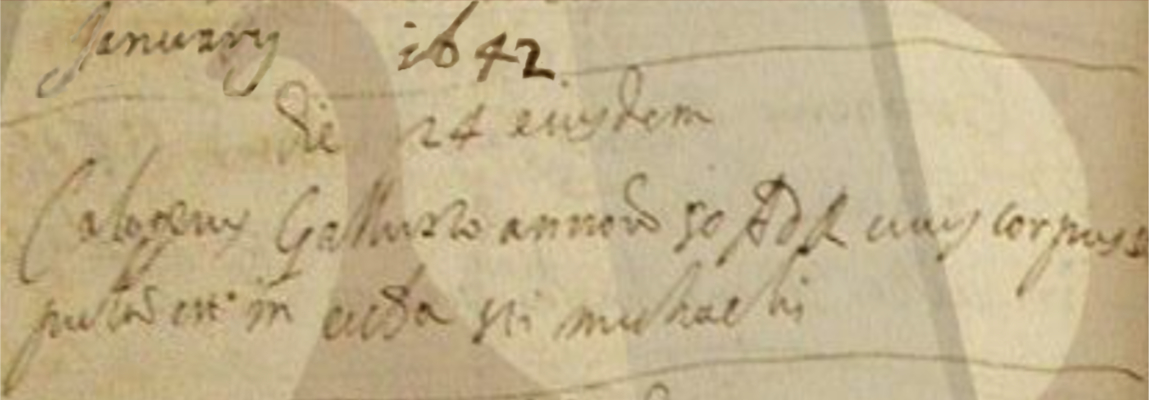 January 1642
die 24 eiusdem
Calogerus Galluzzo annorũ 50 cuius corpus se
pultũ est in ecc.a sti michaelis